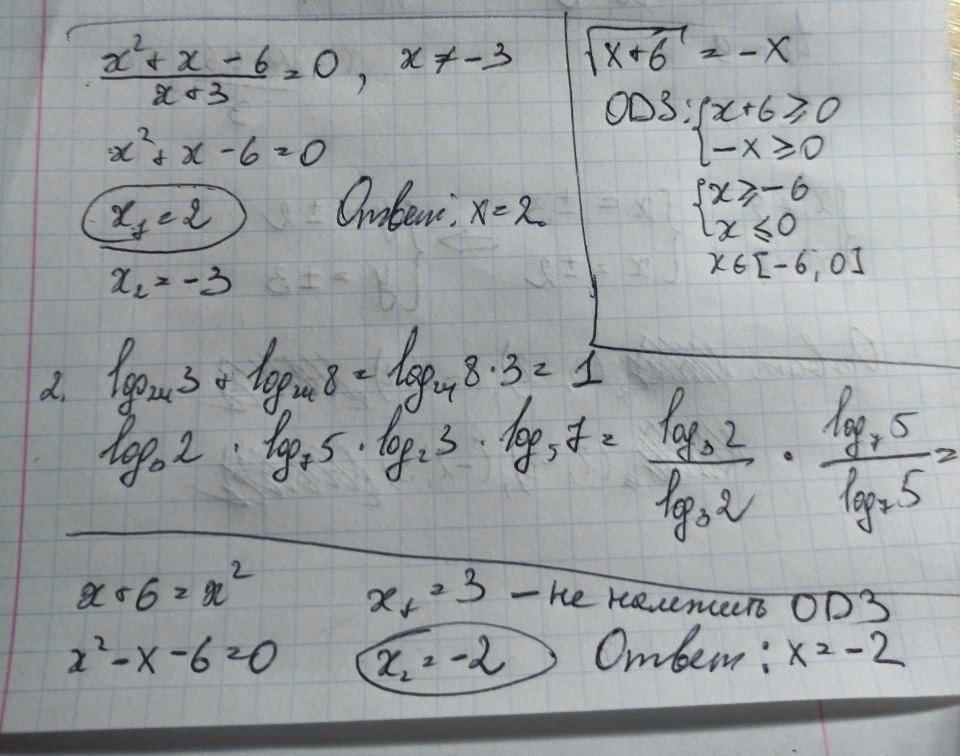 x²+x-6/x+3=0, x≠-3
x²+x-6=0
x₁=2 Ответ: x=2
x₂=-3
√x+6=-x
ОДЗ: {x+6≥0
-x≥0
{x≥-6
x≤0
x∈[-6;0]
2. log₂₄3+log₂₄8=log₂₄8·3=1
log₃2·log₇5·log₂3·log₅7=log₃2/log₃2·log₇5/log₇5=
x+6=x² x₁=3 - не належить ОДЗ
x²-x-6=0 x₂=-2 Ответ: x=-2